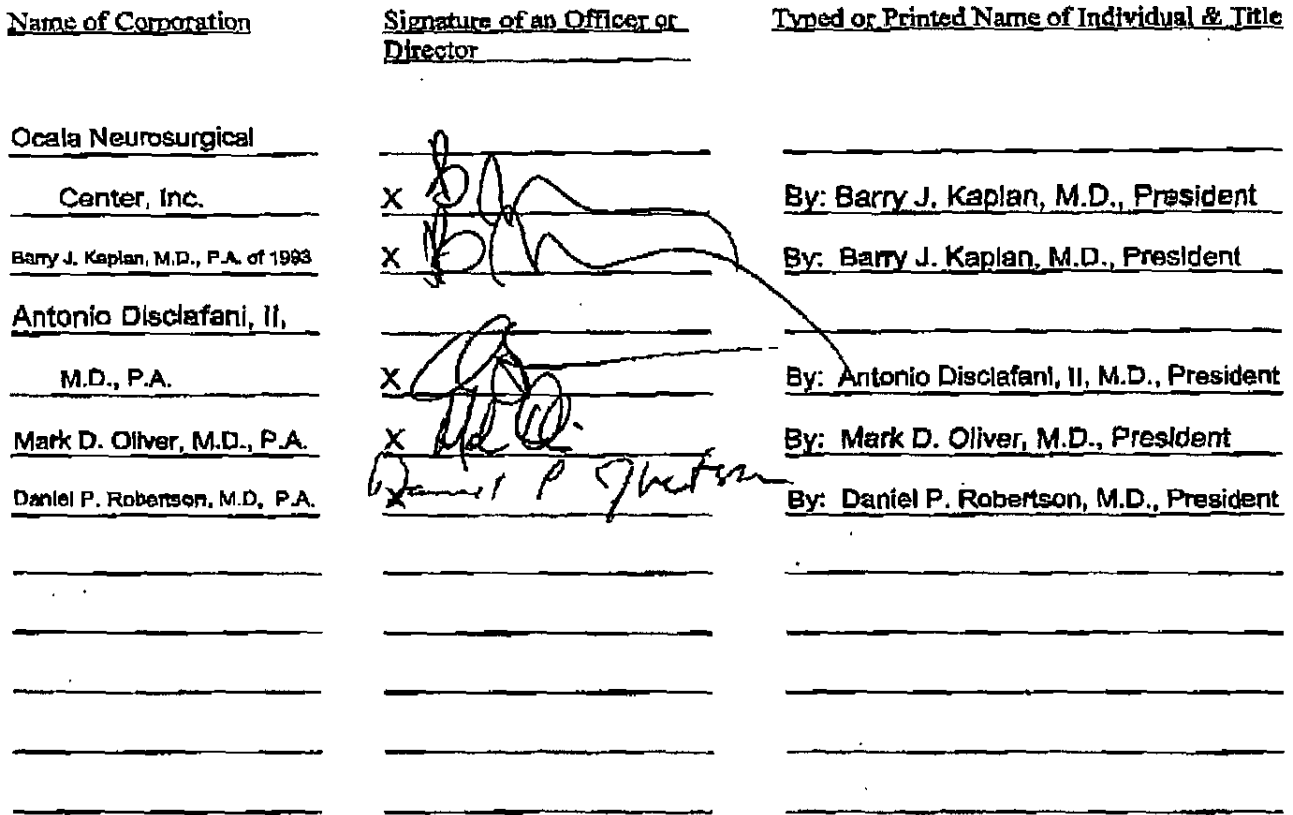 Name of Corporation Signature of an Officer or Typed or Printed Name of Individual & Title
Director
Ocala Neurosurgical
Center, Inc. X By: Barry J. Kaplan, M.D., President
Barry J. Kaplan, M.D., P.A. of 1993 X By: Barry J. Kaplan, M.D., President
Antonio Disclafani, II,
M.D., P.A. X By: Antonio Disclafani, II, M.D., President
Mark D. Oliver, M.D., P.A. X By: Mark D. Oliver, M.D., President
Daniel P. Robertson, M.D, P.A. X Daniel P By: Daniel P. Robertson, M.D., President